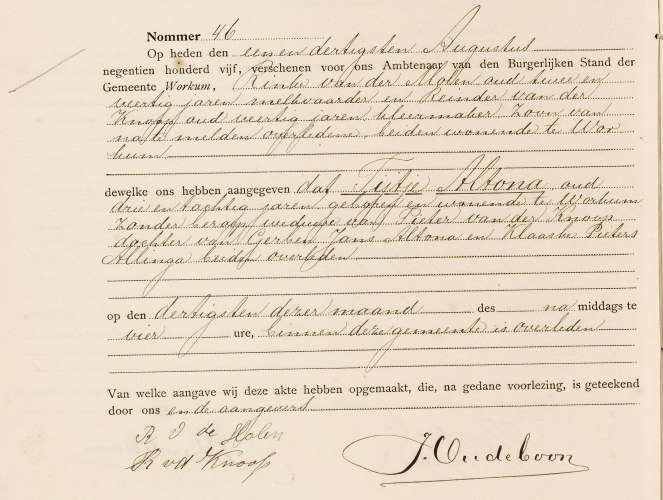 Nommer 46
Op heden den eenen dertigsten Augustus
negentien honderd vijf, verschenen voor ons Ambtenaar van den Burgerlijken Stand der
Gemeente Workum, Rinke van der Molen oud twee en
veertig jaren melkvaarder en Reinder van der
Knoop oud veertig jaren kleermaker Zoon van
na te melden overledene beiden wonende te Wor
kum
dewelke ons hebben aangegeven dat Tietje Altona oud
drie en tachtig jaren geboren en wonende te Workum
zonder beroep weduwe van Pieter van der Knoop
dochter van Gerben Jans Altona en Klaaske Pieters
Allinga beiden overleden
op den dertigsten dezer maand des na middags te
vier ure, binnen deze gemeente is overleden
Van welke aangave wij deze akte hebben opgemaakt, die, na gedane voorlezing, is geteekend
door ons en de aangevers
R v de Molen
R vd Knoop
J. Oudeboon